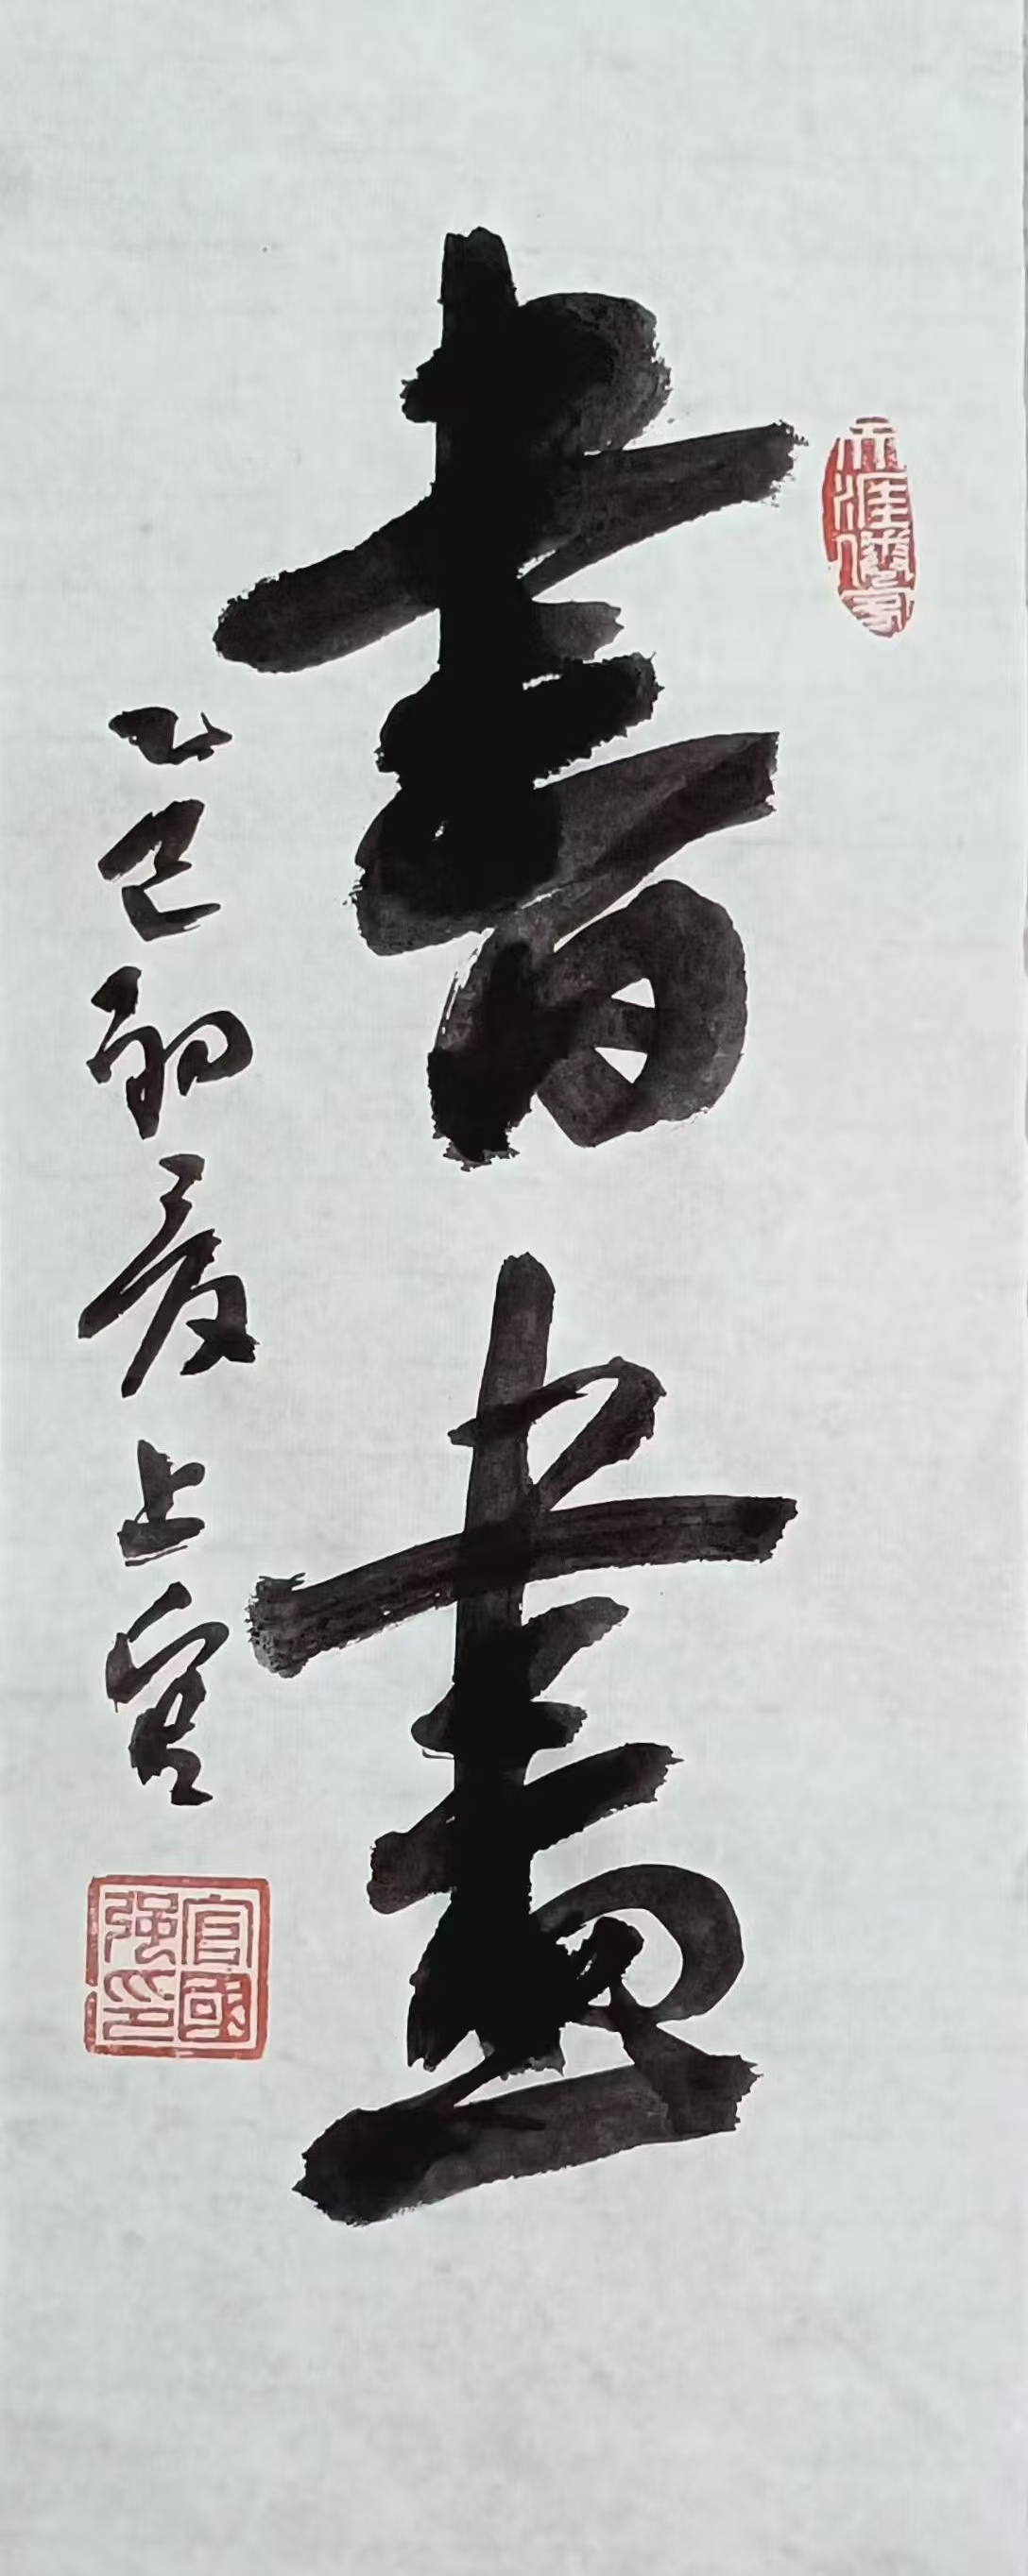 書畫
乙巳初夏上官
官國强印